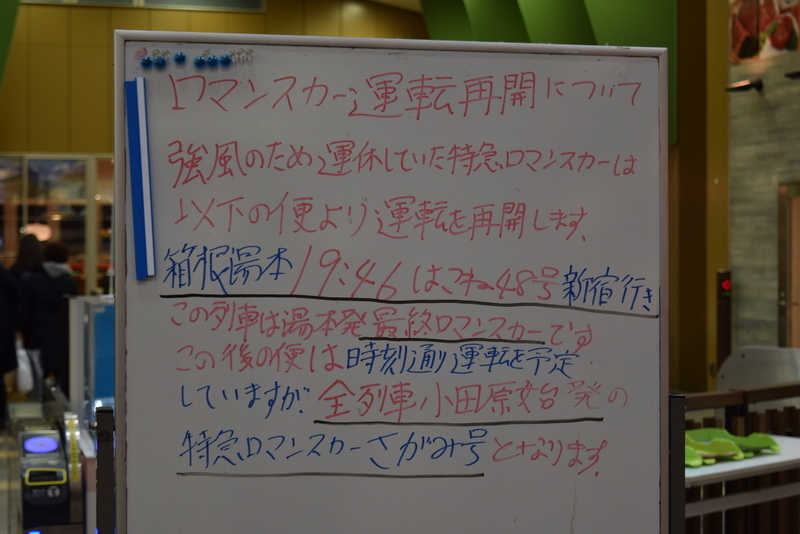 ロマンスカー運転再開について
強風のため運休していた特急ロマンスカーは
以下の便より運転を再開します。
箱根湯本19:46はこね48号新宿行き
この列車は湯本発最終ロマンスカーです
この後の便は時刻通り運転を予定
していますが、全列車小田原始発の
特急ロマンスカーさがみ号となります。